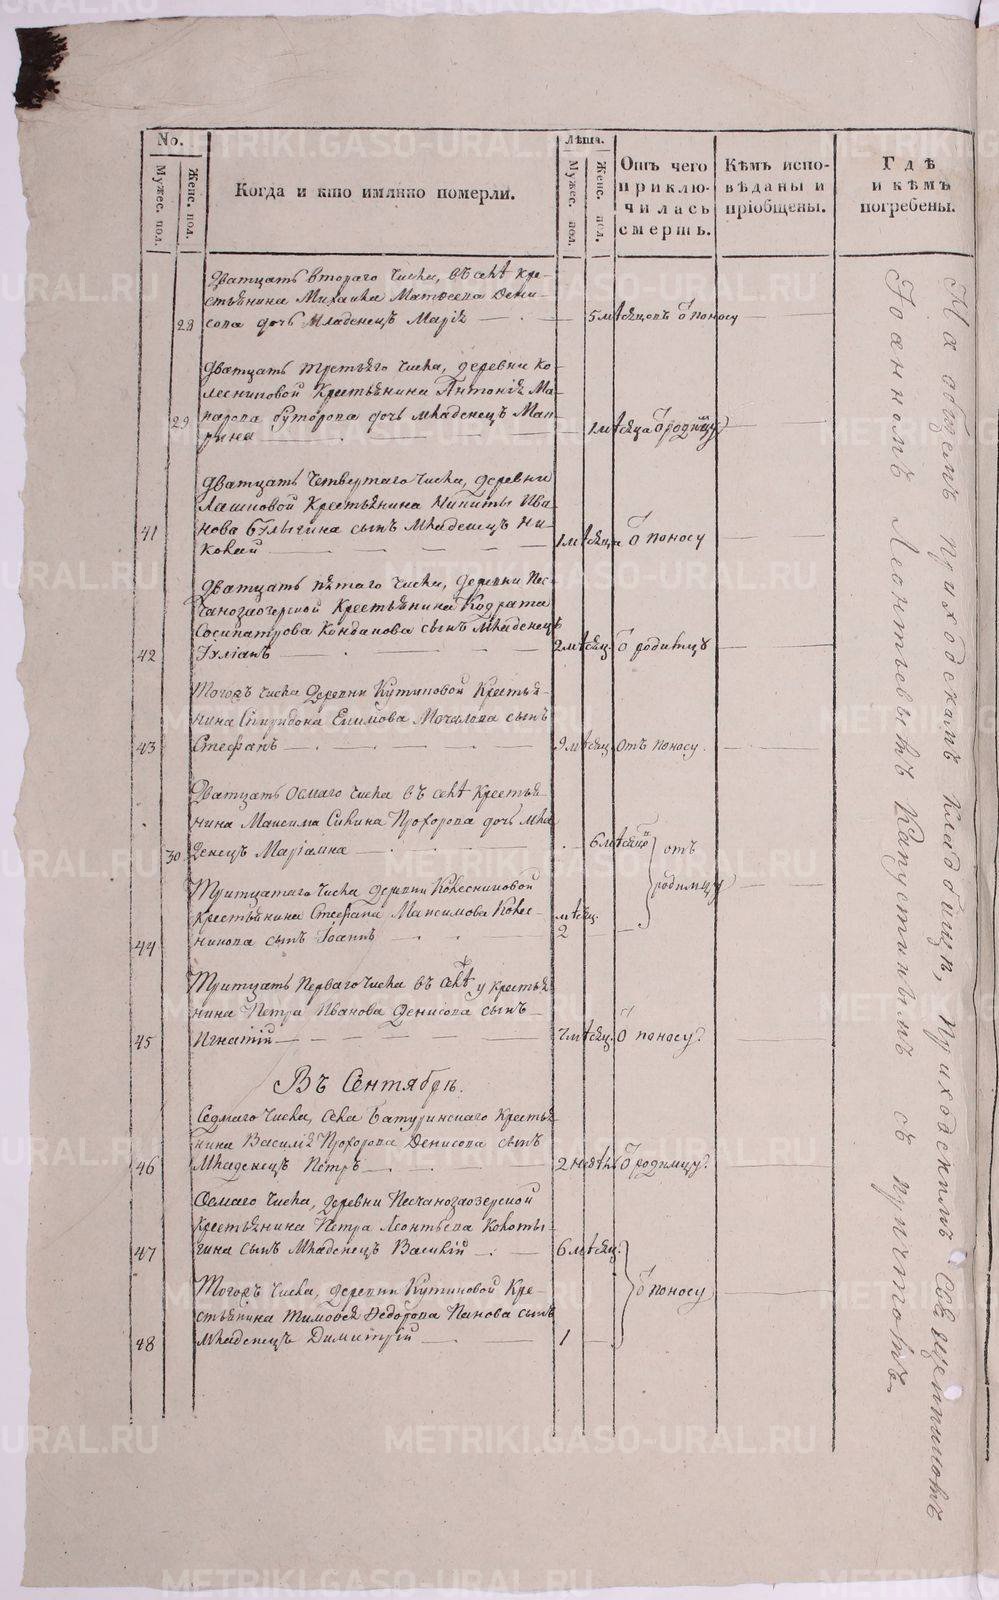 No.
Мужес. пол.
Женс. пол.
Когда и кто имянно померли.
Лѣта.
Мужес. пол.
Женс. пол.
Отъ чего
приклю-
чилась
смерть.
Кѣмъ испо-
вѣданы и
пріобщены.
Гдѣ
и кѣмъ
погребены.
Дватцать втораго числа, въ селѣ кре-
стьянина Михаила Матвеева Дени-
28 сова дочь Младенецъ Марія 5 мѣсяцовъ О поносу
Дватцать третьяго числа, деревни Ко-
лесниковой Крестьянина Антонія Ма-
29 карова Буторова дочь младенецъ Мат-
рина 1 мѣсяца О родимцу
Дватцать четвертаго числа, деревни
Лашковой Крестьянина Никиты Ива-
41 нова Булыгина сынъ младенецъ Ни-
колай 1 мѣсяца О поносу
Дватцать пятаго числа, деревни Пес-
чанозаозерской Крестьянина Кодрата
Сосипатрова Конданова сынъ младенецъ
42 Іуліанъ 2 мѣсяц. О родимцу
Тогожъ числа Деревни Кутиковой Крестья-
нина Спиридона Ефимова Мочалова сынъ
43 Стефанъ 9 мѣсяц. Отъ поносу.
Дватцать осмаго числа въ селѣ Крестья-
нина Максима Сивина Прохорова дочь мла-
30 денецъ Маріамна 6 мѣсяцовъ отъ
родимцу
Тритцатаго числа деревни Колесниковой
крестьянина Стефана Максимова Колес-
44 никова сынъ Іоаннъ мѣсяц. 2
Тритцать перваго числа въ селѣ у крестья-
нина Петра Иванова Денисова сынъ
45 Игнатій 7 мѣсяц. О поносу
Въ Сентябрѣ.
Седмаго числа, села Батуринскаго Крестья-
нина Василія Прохорова Денисова сынъ
46 младенецъ Петръ 2 недѣль О родимцу
Осмаго числа, деревни Песчанозаозерской
крестьянина Петра Леонтьева Колоты-
47 гина сынъ младенецъ Василій 6 мѣсяц.
О поносу
Тогожъ числа, деревни Кутиковой Кре-
стьянина Тимофея Федорова Панова сынъ
48 младенецъ Димитрій 1
На общемъ приходскомъ кладбищѣ, Приходскимъ Священникомъ
Іоанномъ Леонтьевымъ Капустинымъ съ причтомъ.
METRIKI.GASO-URAL.RU